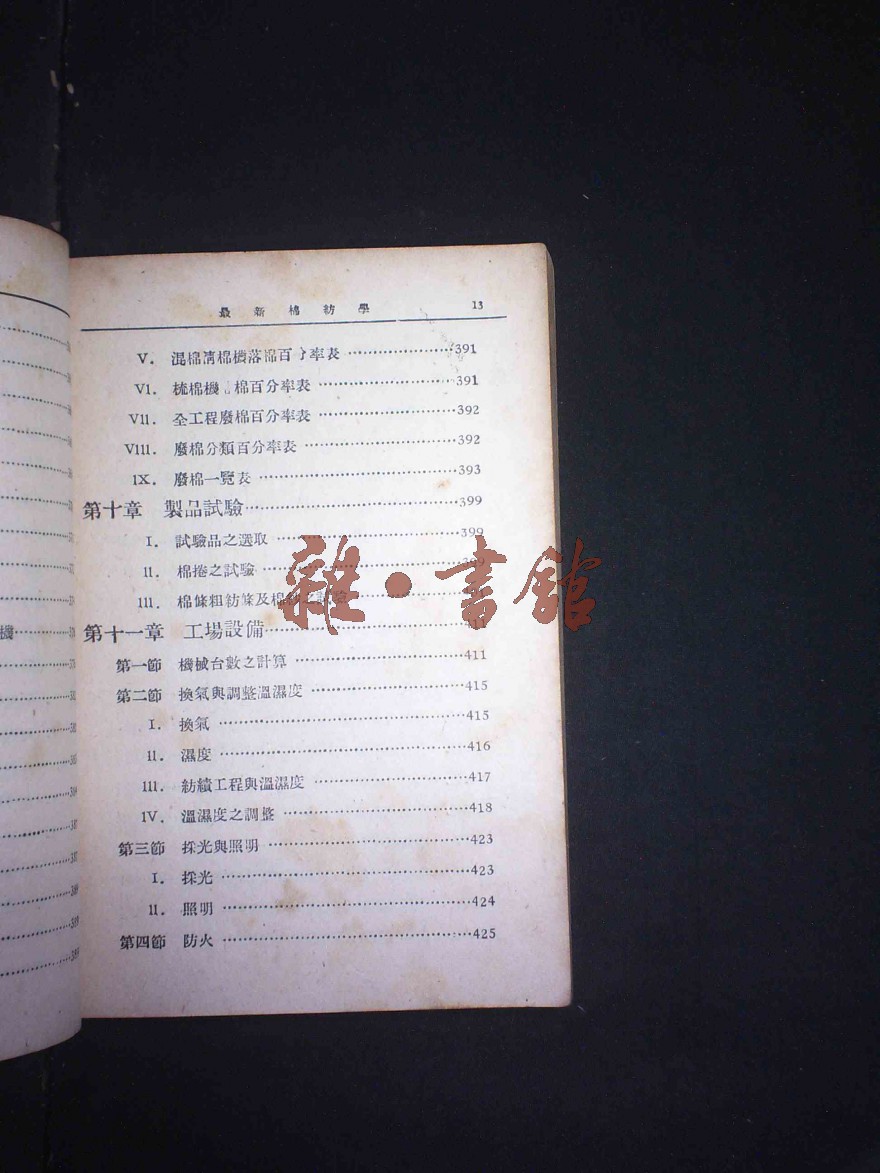 最新棉紡學 13
V. 混棉凊棉機落棉百分率表 391
VI. 梳棉機 棉百分率表 391
VII. 全工程廢棉百分率表 392
VIII. 廢棉分類百分率表 392
IX. 廢棉一覽表 393
第十章 製品試驗 399
I. 試驗品之選取 399
II. 棉捲之試驗
III. 棉條粗紡條及棉
第十一章 工場設備
第一節 機械台數之計算 411
第二節 換氣與調整溫濕度 415
I. 換氣 415
II. 濕度 416
III. 紡績工程與溫濕度 417
IV. 溫濕度之調整 418
第三節 採光與照明 423
I. 採光 423
II. 照明 424
第四節 防火 425
雜·書館
機